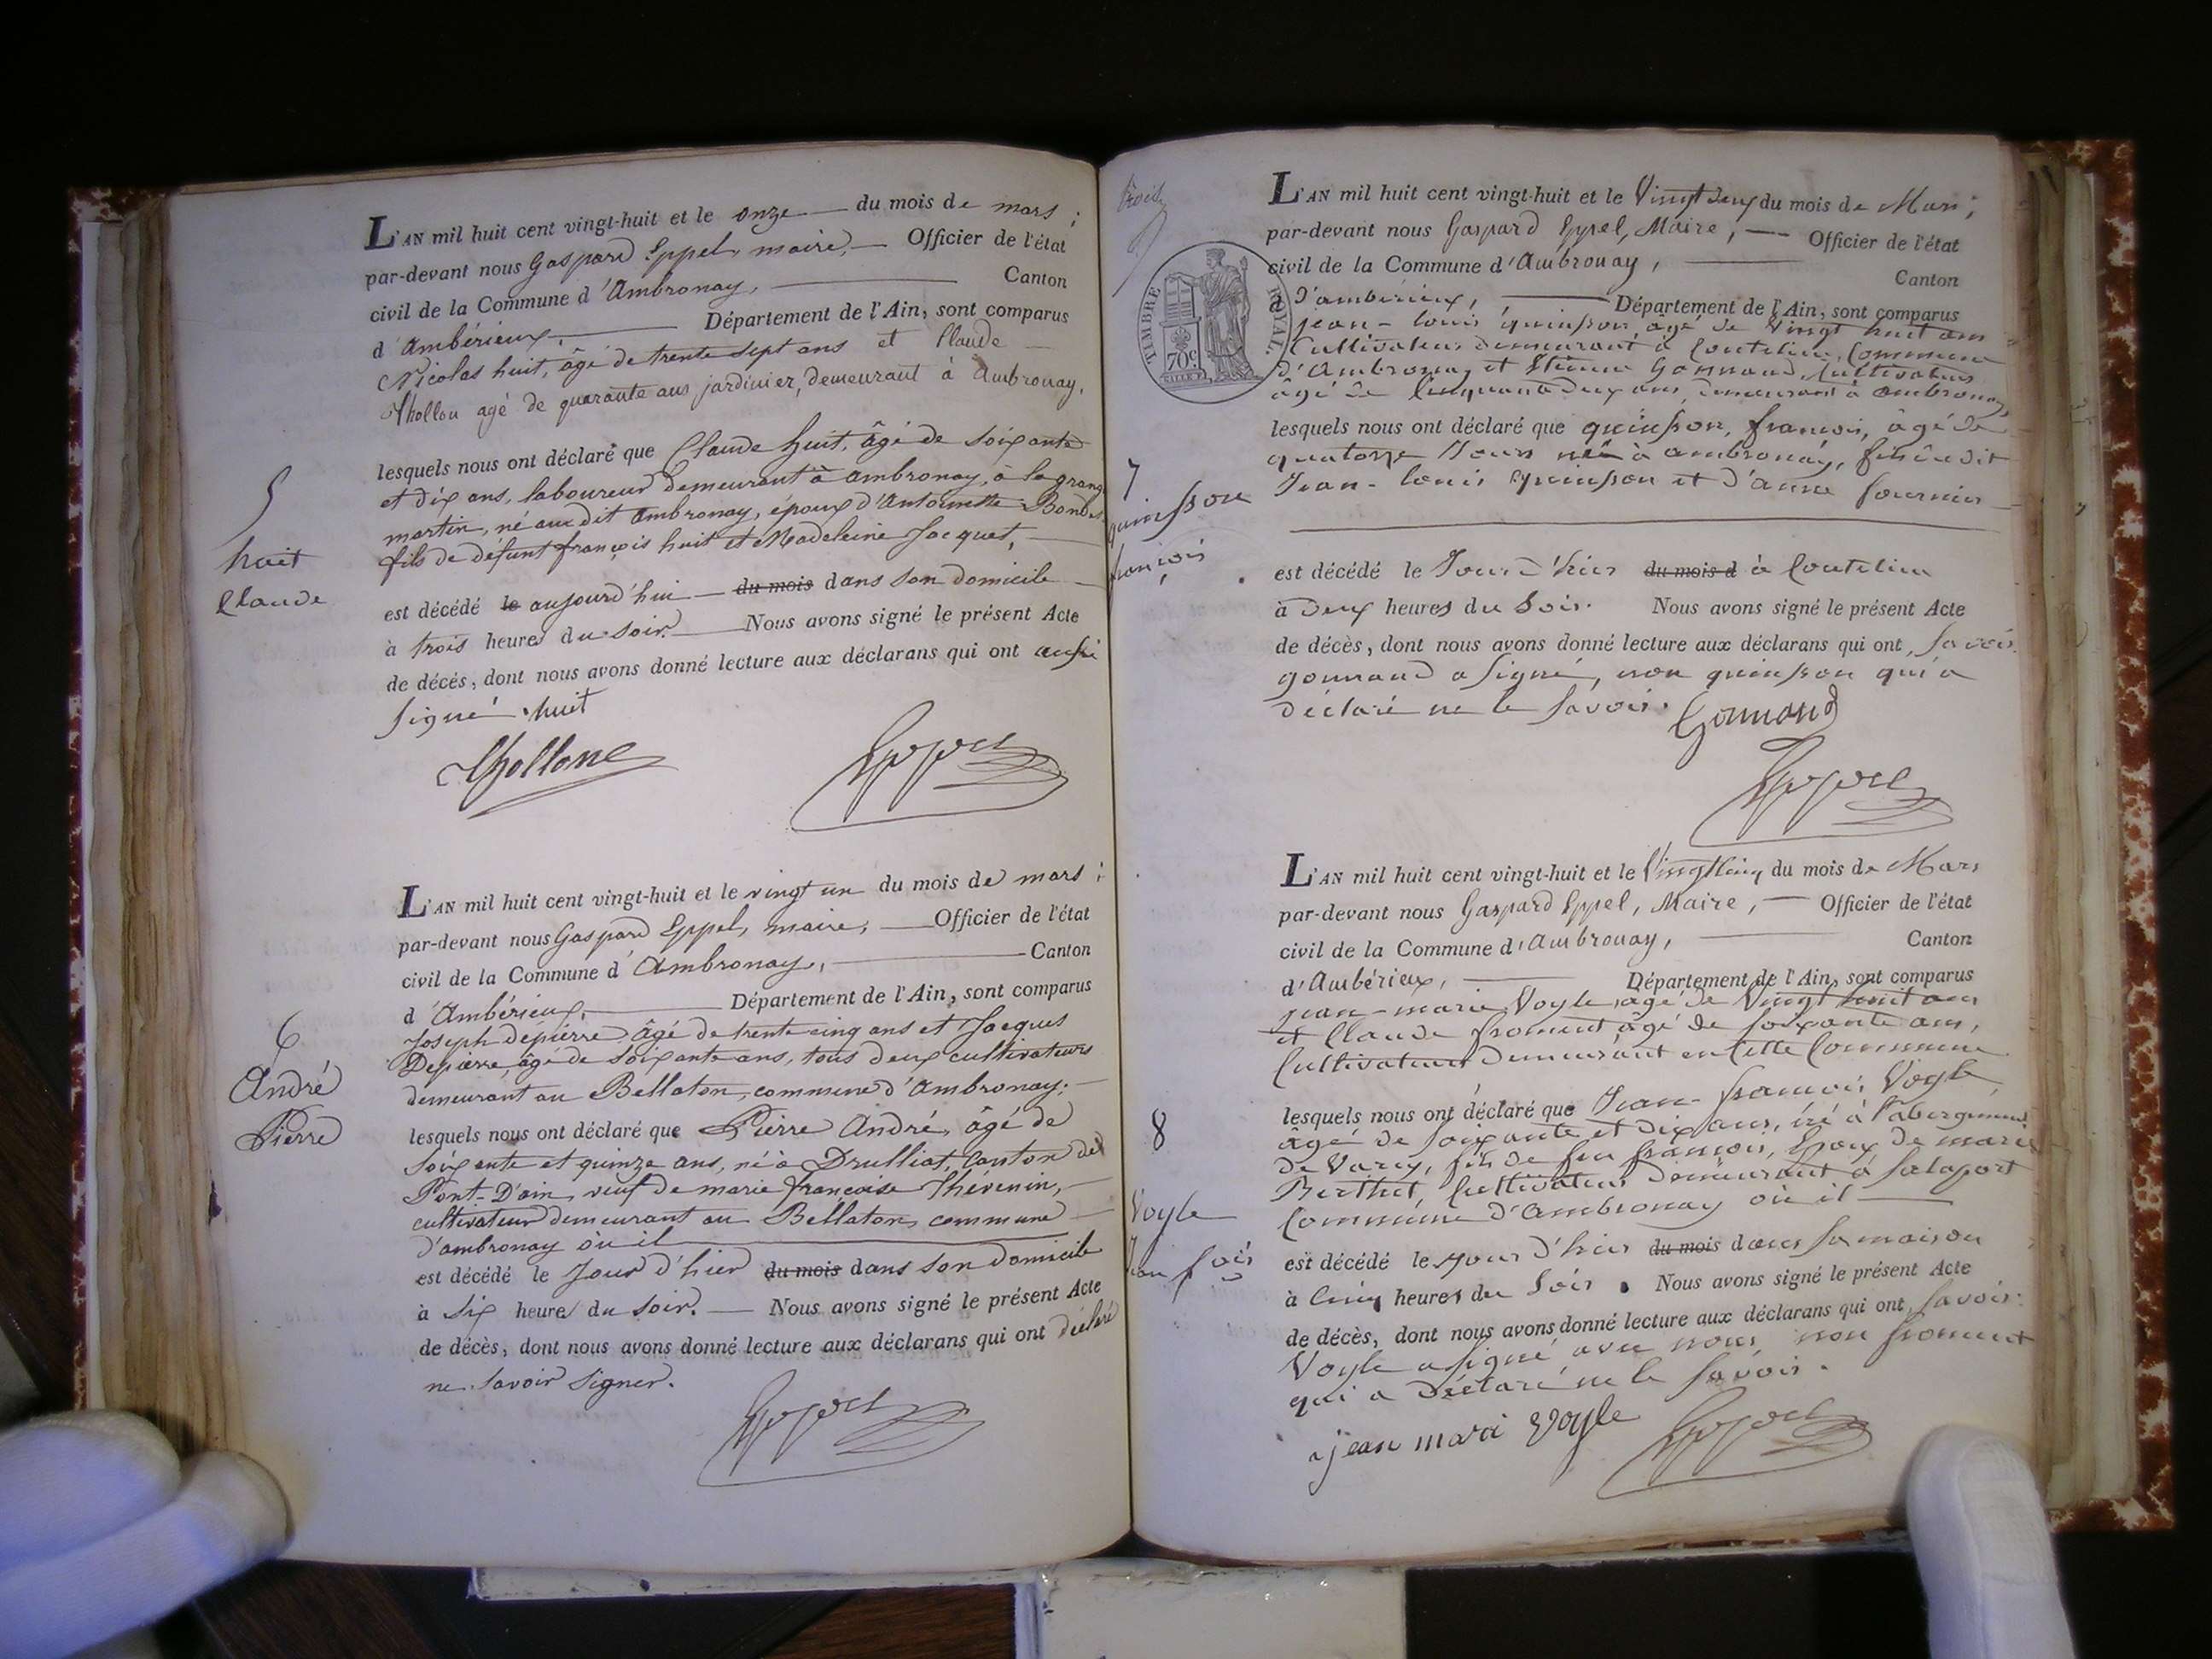 L'AN mil huit cent vingt-huit et le onze du mois de mars ;
par-devant nous Gaspard Eppel, maire, Officier de l'état
civil de la Commune d'Ambronay, Canton
d'Ambérieux, Département de l'Ain, sont comparus
Nicolas huit, âgé de trente sept ans et Claude
Thollon agé de quarante ans jardinier, demeurant à Ambronay,
lesquels nous ont déclaré que Claude huit, âgé de soixante
et dix ans, laboureur demeurant à ambronay, à la grange
martin, né au dit Ambronay, époux d'Antoinette
fils de défunt françois huit et Madeleine Jacquet,
5
huit
Claude
est décédé le aujourd'hui du mois dans son domicile
à trois heures du soir. Nous avons signé le présent Acte
de décès, dont nous avons donné lecture aux déclarans qui ont aussi
signé. huit
Thollone
Eppel
L'AN mil huit cent vingt-huit et le vingt un du mois de mars ;
par-devant nous Gaspard Eppel, maire, Officier de l'état
civil de la Commune d'Ambronay, Canton
d'Ambérieux, Département de l'Ain, sont comparus
Joseph depierre, âgé de trente cinq ans et Jacques
Depierre, âgé de soixante ans, tous deux cultivateurs
demeurant au Bellaton, commune d'Ambronay,
6
André
Pierre
lesquels nous ont déclaré que Pierre André, âgé de
soixante et quinze ans, né à Drulliat, canton de
Pont-D'ain, veuf de marie françoise Thévenin,
cultivateur demeurant au Bellaton, commune
d'ambronay où il
est décédé le Jour d'hier du mois dans son domicile
à six heures du soir. Nous avons signé le présent Acte
de décès, dont nous avons donné lecture aux déclarans qui ont déclaré
ne savoir signer.
Eppel
trois
TIMBRE ROYAL.
70c
L'AN mil huit cent vingt-huit et le Vingt deux du mois de Mars ;
par-devant nous Gaspard Eppel, Maire, Officier de l'état
civil de la Commune d'Ambronay, Canton
d'ambérieux, Département de l'Ain, sont comparus
jean-louis quinson, âgé de Vingt huit ans
Cultivateur demeurant à Coutelieu, Commune
d'Ambronay et Etienne Gonnand, Cultivateur
âgé de Cinquante deux ans, demeurant à ambronay
lesquels nous ont déclaré que quinson, francois, âgé de
quatorze Jours né à ambronay, fils du dit
Jean-louis quinson et d'anne fournier
7
quinsson
francois
est décédé le Jour d'hier du mois d à Coutelieu
à Deux heures du Soir. Nous avons signé le présent Acte
de décès, dont nous avons donné lecture aux déclarans qui ont, Savoir
gonnand a signé, non quinsson qui a
déclaré ne le savoir. Gonnand
Eppel
L'AN mil huit cent vingt-huit et le Vingt Cinq du mois de Mars
par-devant nous Gaspard Eppel, Maire, Officier de l'état
civil de la Commune d'Ambronay, Canton
d'Ambérieux, Département de l'Ain, sont comparus
jean-marie Voyle, agé de Vingt huit ans
et Claude froment âgé de soixante ans,
Cultivateurs demeurant en Cette Commune
8
Voyle
Jean fois
lesquels nous ont déclaré que Jean-francois Voyle
âgé de soixante et dix ans, né à l'abergement
de Varey, fils de feu francois, Epoux de marie
Berthet, Cultivateur demeurant à Salaport
Commune d'Ambronay où il
est décédé le Jour d'hier du mois dans sa maison
à Cinq heures du Soir. Nous avons signé le présent Acte
de décès, dont nous avons donné lecture aux déclarans qui ont, Savoir:
Voyle a signé avec nous, non froment
qui a déclaré ne le savoir.
jean mari voyle
Eppel